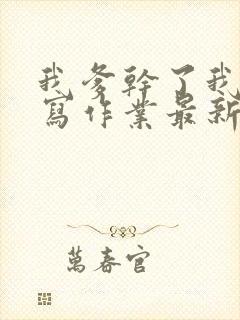 我爹幹了我
寫作業最新
萬春官